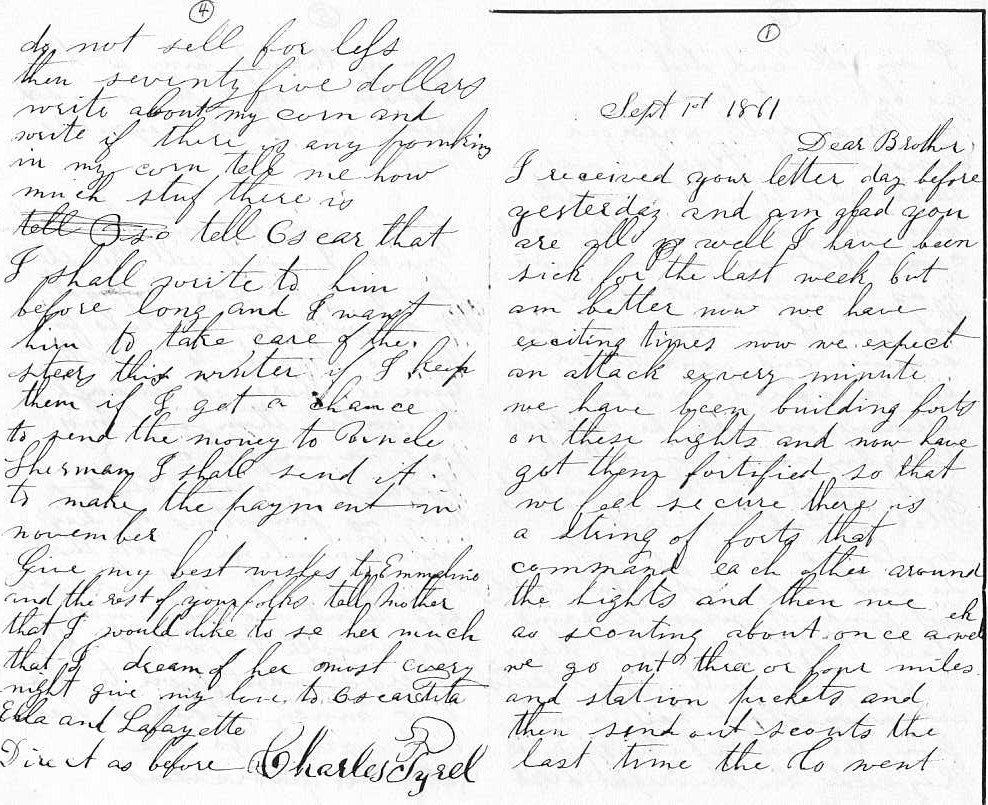 4
do not sell for less
then seventy five dollars
write about my corn and
write if there is any pomkins
in my corn tell me how
much stuf there is
tell Os tell Oscar that
I shall write to him
before long and I want
him to take care of the
steers this winter if I keep
them if I get a chance
to send the money to Uncle
Sherman I shall send it
to make the payment in
november
Give my best wishes to Emmeline
and the rest of your folks tell Mother
that I would like to se her much
that I dream of her most every
night give my love to Oscar Tita
Ella and Lafayette
Direct as before Charles Tyrel
1
Sept 1st 1861
Dear Brother
I received your letter day before
yesterday and am glad you
are all well I have been
sick for the last week but
am better now we have
exciting times now we expect
an attack every minute
we have been building forts
on these hights and now have
got them fortified so that
we feel secure there is
a string of forts that
command each other around
the hights and then we
go scouting about once a week
we go out three or four miles
and station pickets and
then send out scouts the
last time the Co went